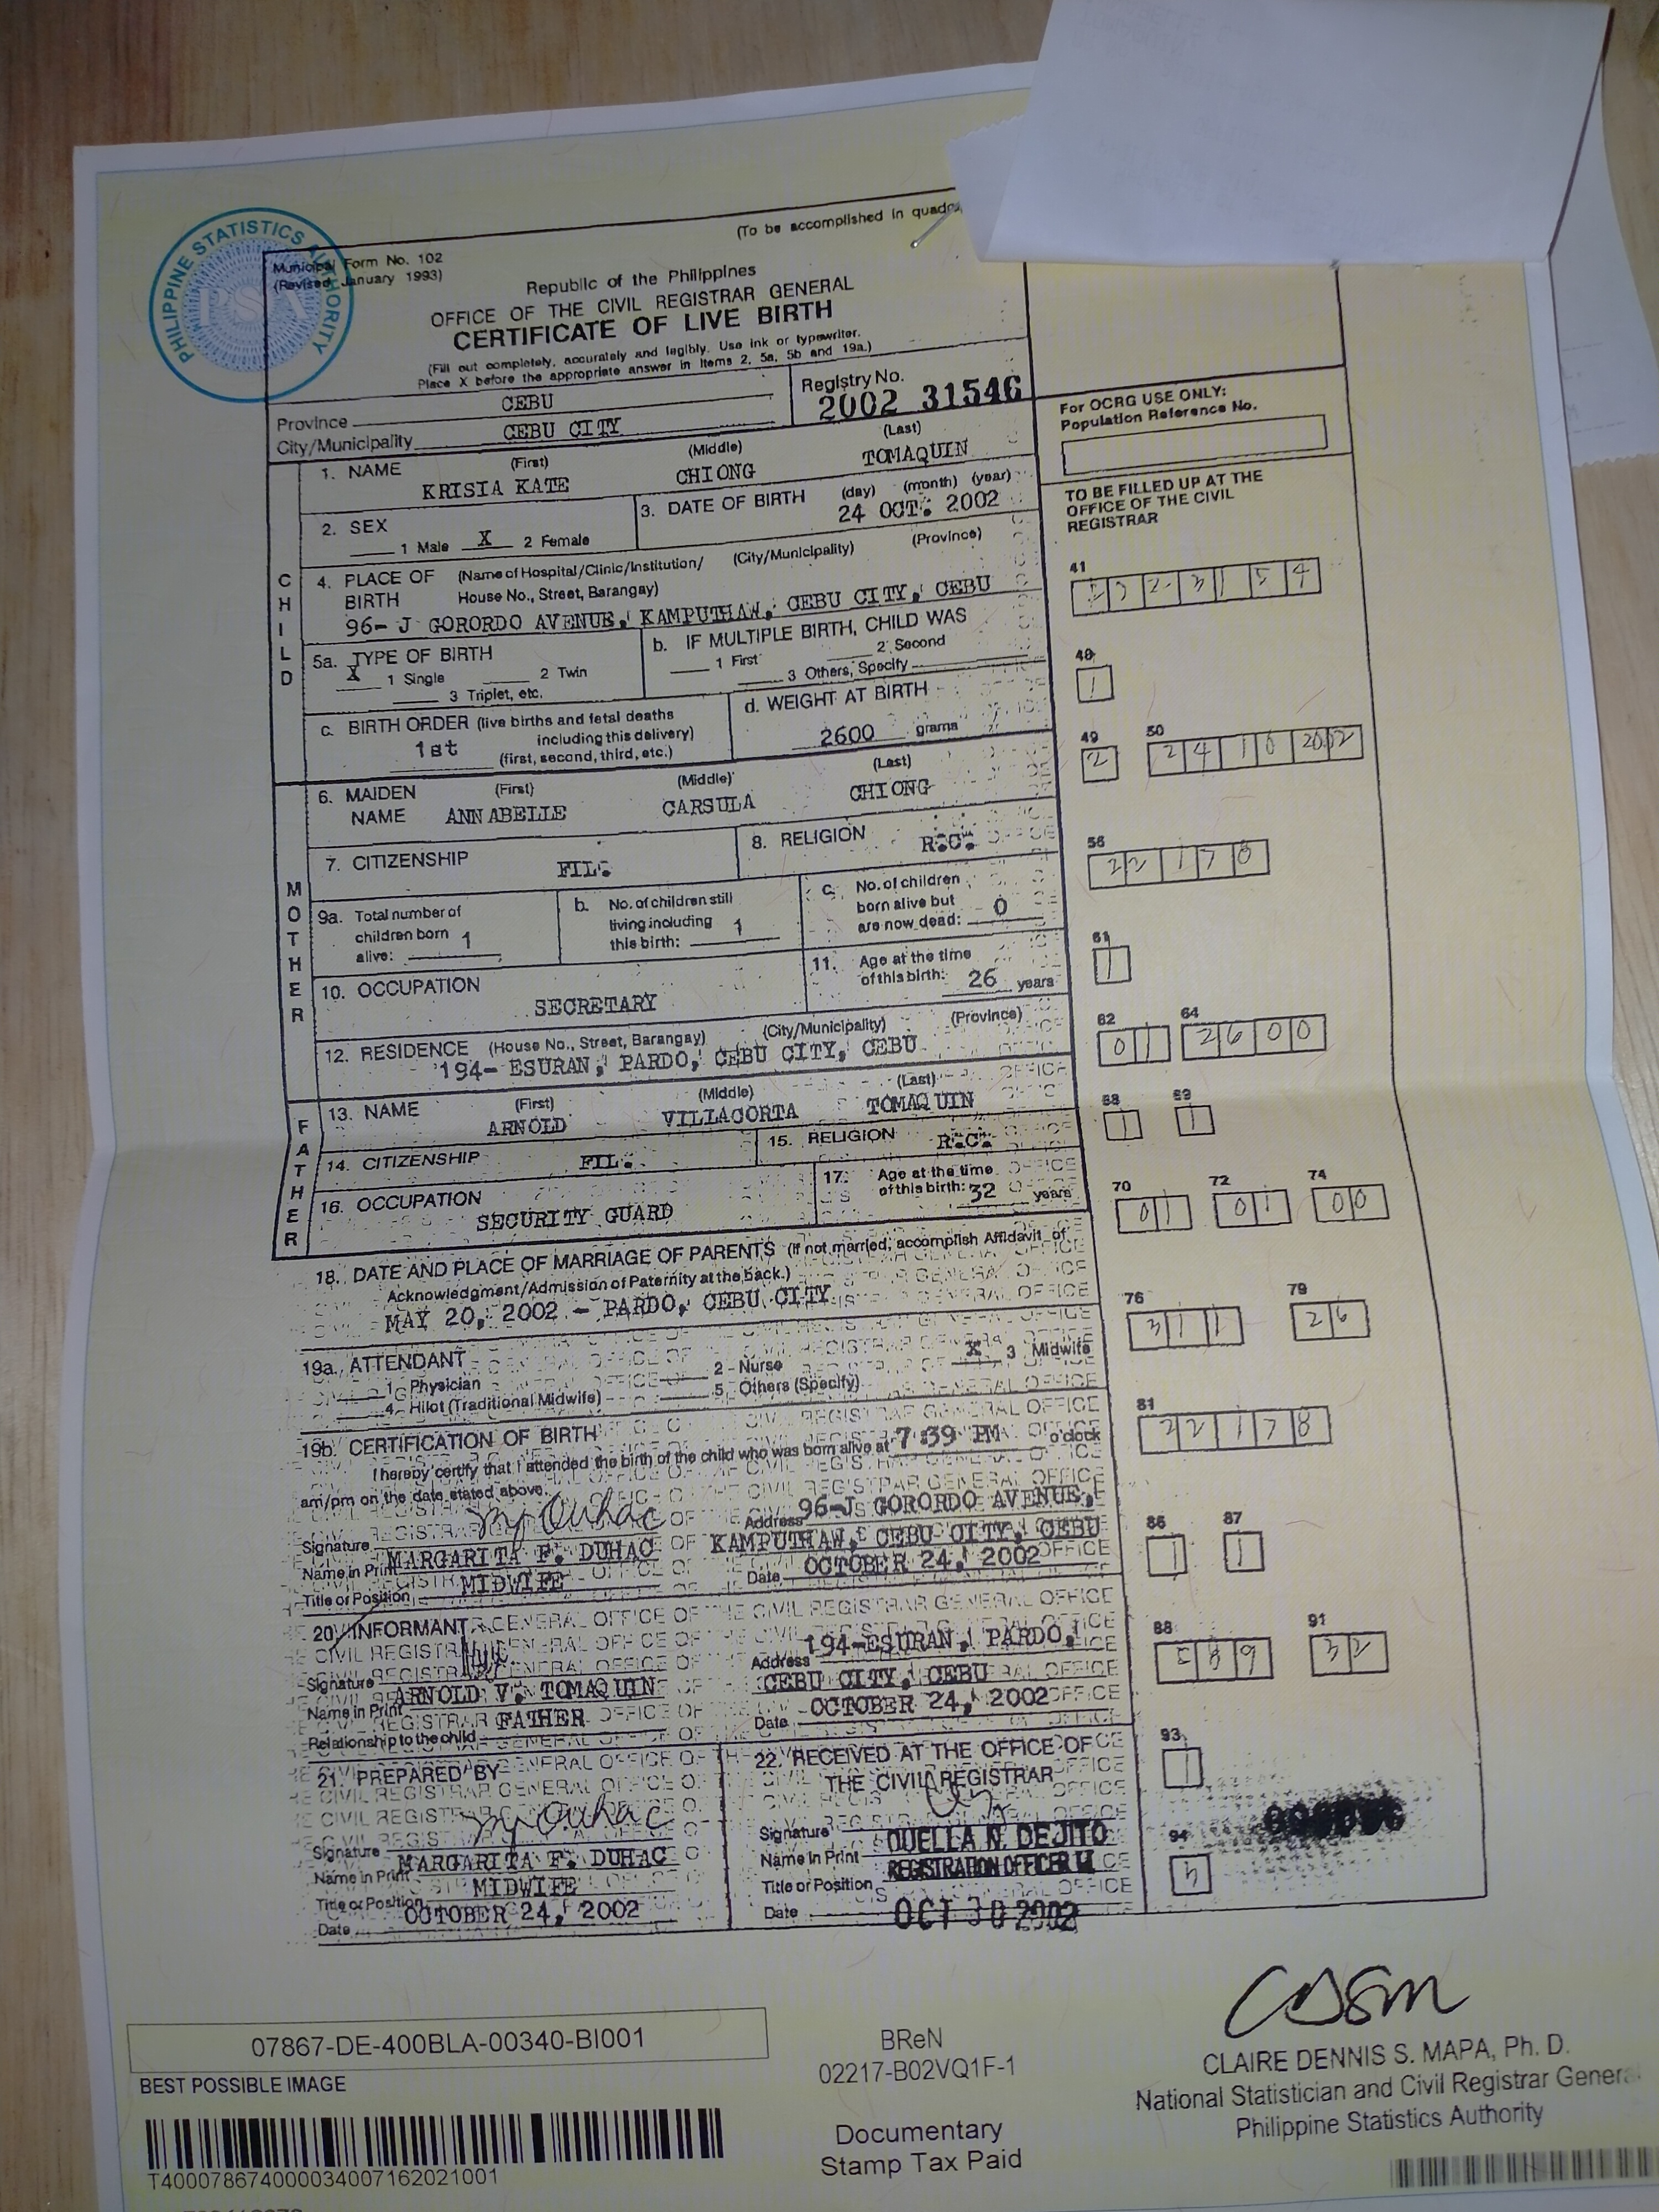 (To be accomplished in
PHILIPPINE STATISTICS AUTHORITY
PSA
Municipal Form No. 102
(Revised January 1993)
Republic of the Philippines
OFFICE OF THE CIVIL REGISTRAR GENERAL
CERTIFICATE OF LIVE BIRTH
(Fill out completely, accurately and legibly. Use ink or typewriter.
Place X before the appropriate answer in Items 2, 5a, 5b and 19a.)
Province CEBU
City/Municipality CEBU CITY
Registry No.
2002 31546
For OCRG USE ONLY:
Population Reference No.
TO BE FILLED UP AT THE
OFFICE OF THE CIVIL
REGISTRAR
CHILD
1. NAME (First) (Middle) (Last)
KRISIA KATE CHIONG TOMAQUIN
2. SEX
1 Male X 2 Female
3. DATE OF BIRTH (day) (month) (year)
24 OCT. 2002
4. PLACE OF BIRTH (Name of Hospital/Clinic/Institution/ (City/Municipality) (Province)
House No., Street, Barangay)
96- J GORORDO AVENUE, KAMPUTHAW, CEBU CITY, CEBU
5a. TYPE OF BIRTH
X 1 Single 2 Twin
3 Triplet, etc.
b. IF MULTIPLE BIRTH, CHILD WAS
1 First 2 Second
3 Others, Specify
c. BIRTH ORDER (live births and fetal deaths
including this delivery)
1st (first, second, third, etc.)
d. WEIGHT AT BIRTH
2600 grams
MOTHER
6. MAIDEN NAME (First) (Middle) (Last)
ANNABELLE CARSULA CHIONG
7. CITIZENSHIP FIL.
8. RELIGION R.C.
9a. Total number of
children born
alive: 1
b. No. of children still
living including
this birth: 1
c. No. of children
born alive but
are now dead: 0
10. OCCUPATION
SECRETARY
11. Age at the time
of this birth: 26 years
12. RESIDENCE (House No., Street, Barangay) (City/Municipality) (Province)
194- ESURAN, PARDO, CEBU CITY, CEBU
FATHER
13. NAME (First) (Middle) (Last)
ARNOLD VILLACORTA TOMAQUIN
14. CITIZENSHIP FIL.
15. RELIGION R.C.
16. OCCUPATION
SECURITY GUARD
17. Age at the time
of this birth: 32 years
18. DATE AND PLACE OF MARRIAGE OF PARENTS (If not married, accomplish Affidavit of
Acknowledgment/Admission of Paternity at the back.)
MAY 20, 2002 - PARDO, CEBU CITY
19a. ATTENDANT
1 Physician 2 Nurse X 3 Midwife
4 Hilot (Traditional Midwife) 5 Others (Specify)
19b. CERTIFICATION OF BIRTH
I hereby certify that I attended the birth of the child who was born alive at 7:39 PM o'clock
am/pm on the date stated above.
Signature
Name in Print MARGARITA F. DUHAC
Title or Position MIDWIFE
Address 96-J GORORDO AVENUE,
KAMPUTHAW, CEBU CITY, CEBU
Date OCTOBER 24, 2002
20. INFORMANT
Signature
Name in Print ARNOLD V. TOMAQUIN
Relationship to the child FATHER
Address 194-ESURAN, PARDO,
CEBU CITY, CEBU
Date OCTOBER 24, 2002
21. PREPARED BY
Signature
Name in Print MARGARITA F. DUHAC
Title or Position MIDWIFE
Date OCTOBER 24, 2002
22. RECEIVED AT THE OFFICE OF
THE CIVIL REGISTRAR
Signature
Name in Print OUELLA N. DEJITO
Title or Position REGISTRATION OFFICER
Date OCT 30 2002
41
48
1
49
2
50
2 4 1 0 2002
56
2 2 1 7 8
61
1
62
0 1
64
2 6 0 0
68
1
69
1
70
0 1
72
0 1
74
0 0
76
3 1 1
79
2 6
81
2 2 1 7 8
86
1
87
1
88
91
3 2
93
1
94
07867-DE-400BLA-00340-BI001
BEST POSSIBLE IMAGE
T400078674000034007162021001
BReN
02217-B02VQ1F-1
Documentary
Stamp Tax Paid
CLAIRE DENNIS S. MAPA, Ph. D.
National Statistician and Civil Registrar General
Philippine Statistics Authority